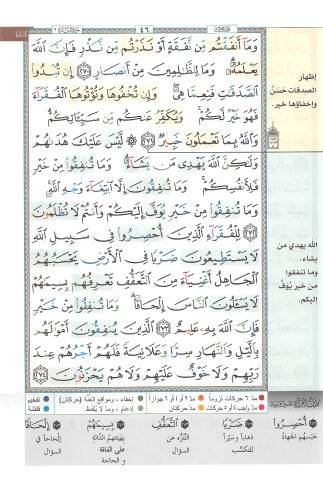 ٤٦
وَمَآ أَنفَقْتُم مِّن نَّفَقَةٍ أَوْ نَذَرْتُم مِّن نَّذْرٍ فَإِنَّ ٱللَّهَ
يَعْلَمُهُۥ ۗ وَمَا لِلظَّـٰلِمِينَ مِنْ أَنصَارٍ ﴿٢٧٠﴾ إِن تُبْدُوا۟
ٱلصَّدَقَـٰتِ فَنِعِمَّا هِىَ ۖ وَإِن تُخْفُوهَا وَتُؤْتُوهَا ٱلْفُقَرَآءَ
فَهُوَ خَيْرٌ لَّكُمْ ۚ وَيُكَفِّرُ عَنكُم مِّن سَيِّـَٔاتِكُمْ ۗ
وَٱللَّهُ بِمَا تَعْمَلُونَ خَبِيرٌ ﴿٢٧١﴾ ۞ لَّيْسَ عَلَيْكَ هُدَىٰهُمْ
وَلَـٰكِنَّ ٱللَّهَ يَهْدِى مَن يَشَآءُ ۗ وَمَا تُنفِقُوا۟ مِنْ خَيْرٍ
فَلِأَنفُسِكُمْ ۚ وَمَا تُنفِقُونَ إِلَّا ٱبْتِغَآءَ وَجْهِ ٱللَّهِ ۚ
وَمَا تُنفِقُوا۟ مِنْ خَيْرٍ يُوَفَّ إِلَيْكُمْ وَأَنتُمْ لَا تُظْلَمُونَ
﴿٢٧٢﴾ لِلْفُقَرَآءِ ٱلَّذِينَ أُحْصِرُوا۟ فِى سَبِيلِ ٱللَّهِ
لَا يَسْتَطِيعُونَ ضَرْبًا فِى ٱلْأَرْضِ يَحْسَبُهُمُ
ٱلْجَاهِلُ أَغْنِيَآءَ مِنَ ٱلتَّعَفُّفِ تَعْرِفُهُم بِسِيمَـٰهُمْ
لَا يَسْـَٔلُونَ ٱلنَّاسَ إِلْحَافًا ۗ وَمَا تُنفِقُوا۟ مِنْ خَيْرٍ
فَإِنَّ ٱللَّهَ بِهِۦ عَلِيمٌ ﴿٢٧٣﴾ ٱلَّذِينَ يُنفِقُونَ أَمْوَٰلَهُم
بِٱلَّيْلِ وَٱلنَّهَارِ سِرًّا وَعَلَانِيَةً فَلَهُمْ أَجْرُهُمْ عِندَ
رَبِّهِمْ وَلَا خَوْفٌ عَلَيْهِمْ وَلَا هُمْ يَحْزَنُونَ ﴿٢٧٤﴾
إظهار
الصدقات حَسَنٌ
وإخفاؤها خير.
الله يهدي من
يشاء،
وما تنفقوا
من خير يُوَفَّ
إليكم.
مدّ ٦ حركات لزوماً مدّ ٢ أو ٤ أو ٦ جوازاً إخفاء، ومواقع الغُنَّة (حركتان) تفخيم
مدّ واجب ٤ أو ٥ حركات مدّ حركتان إدغام، وما لا يُلفَظ قلقلة
أُحْصِرُوا ضَرْبًا التَّعَفُّفِ بِسِيمَـٰهُمْ إِلْحَافًا
حَبَسَهُم الجهادُ ذهاباً وسَيْراً التَّنَزُّه عن بهيئتهم الدّالة إلحاحاً في
للتكسُّب السؤال على الفاقة السؤال
و الحاجة